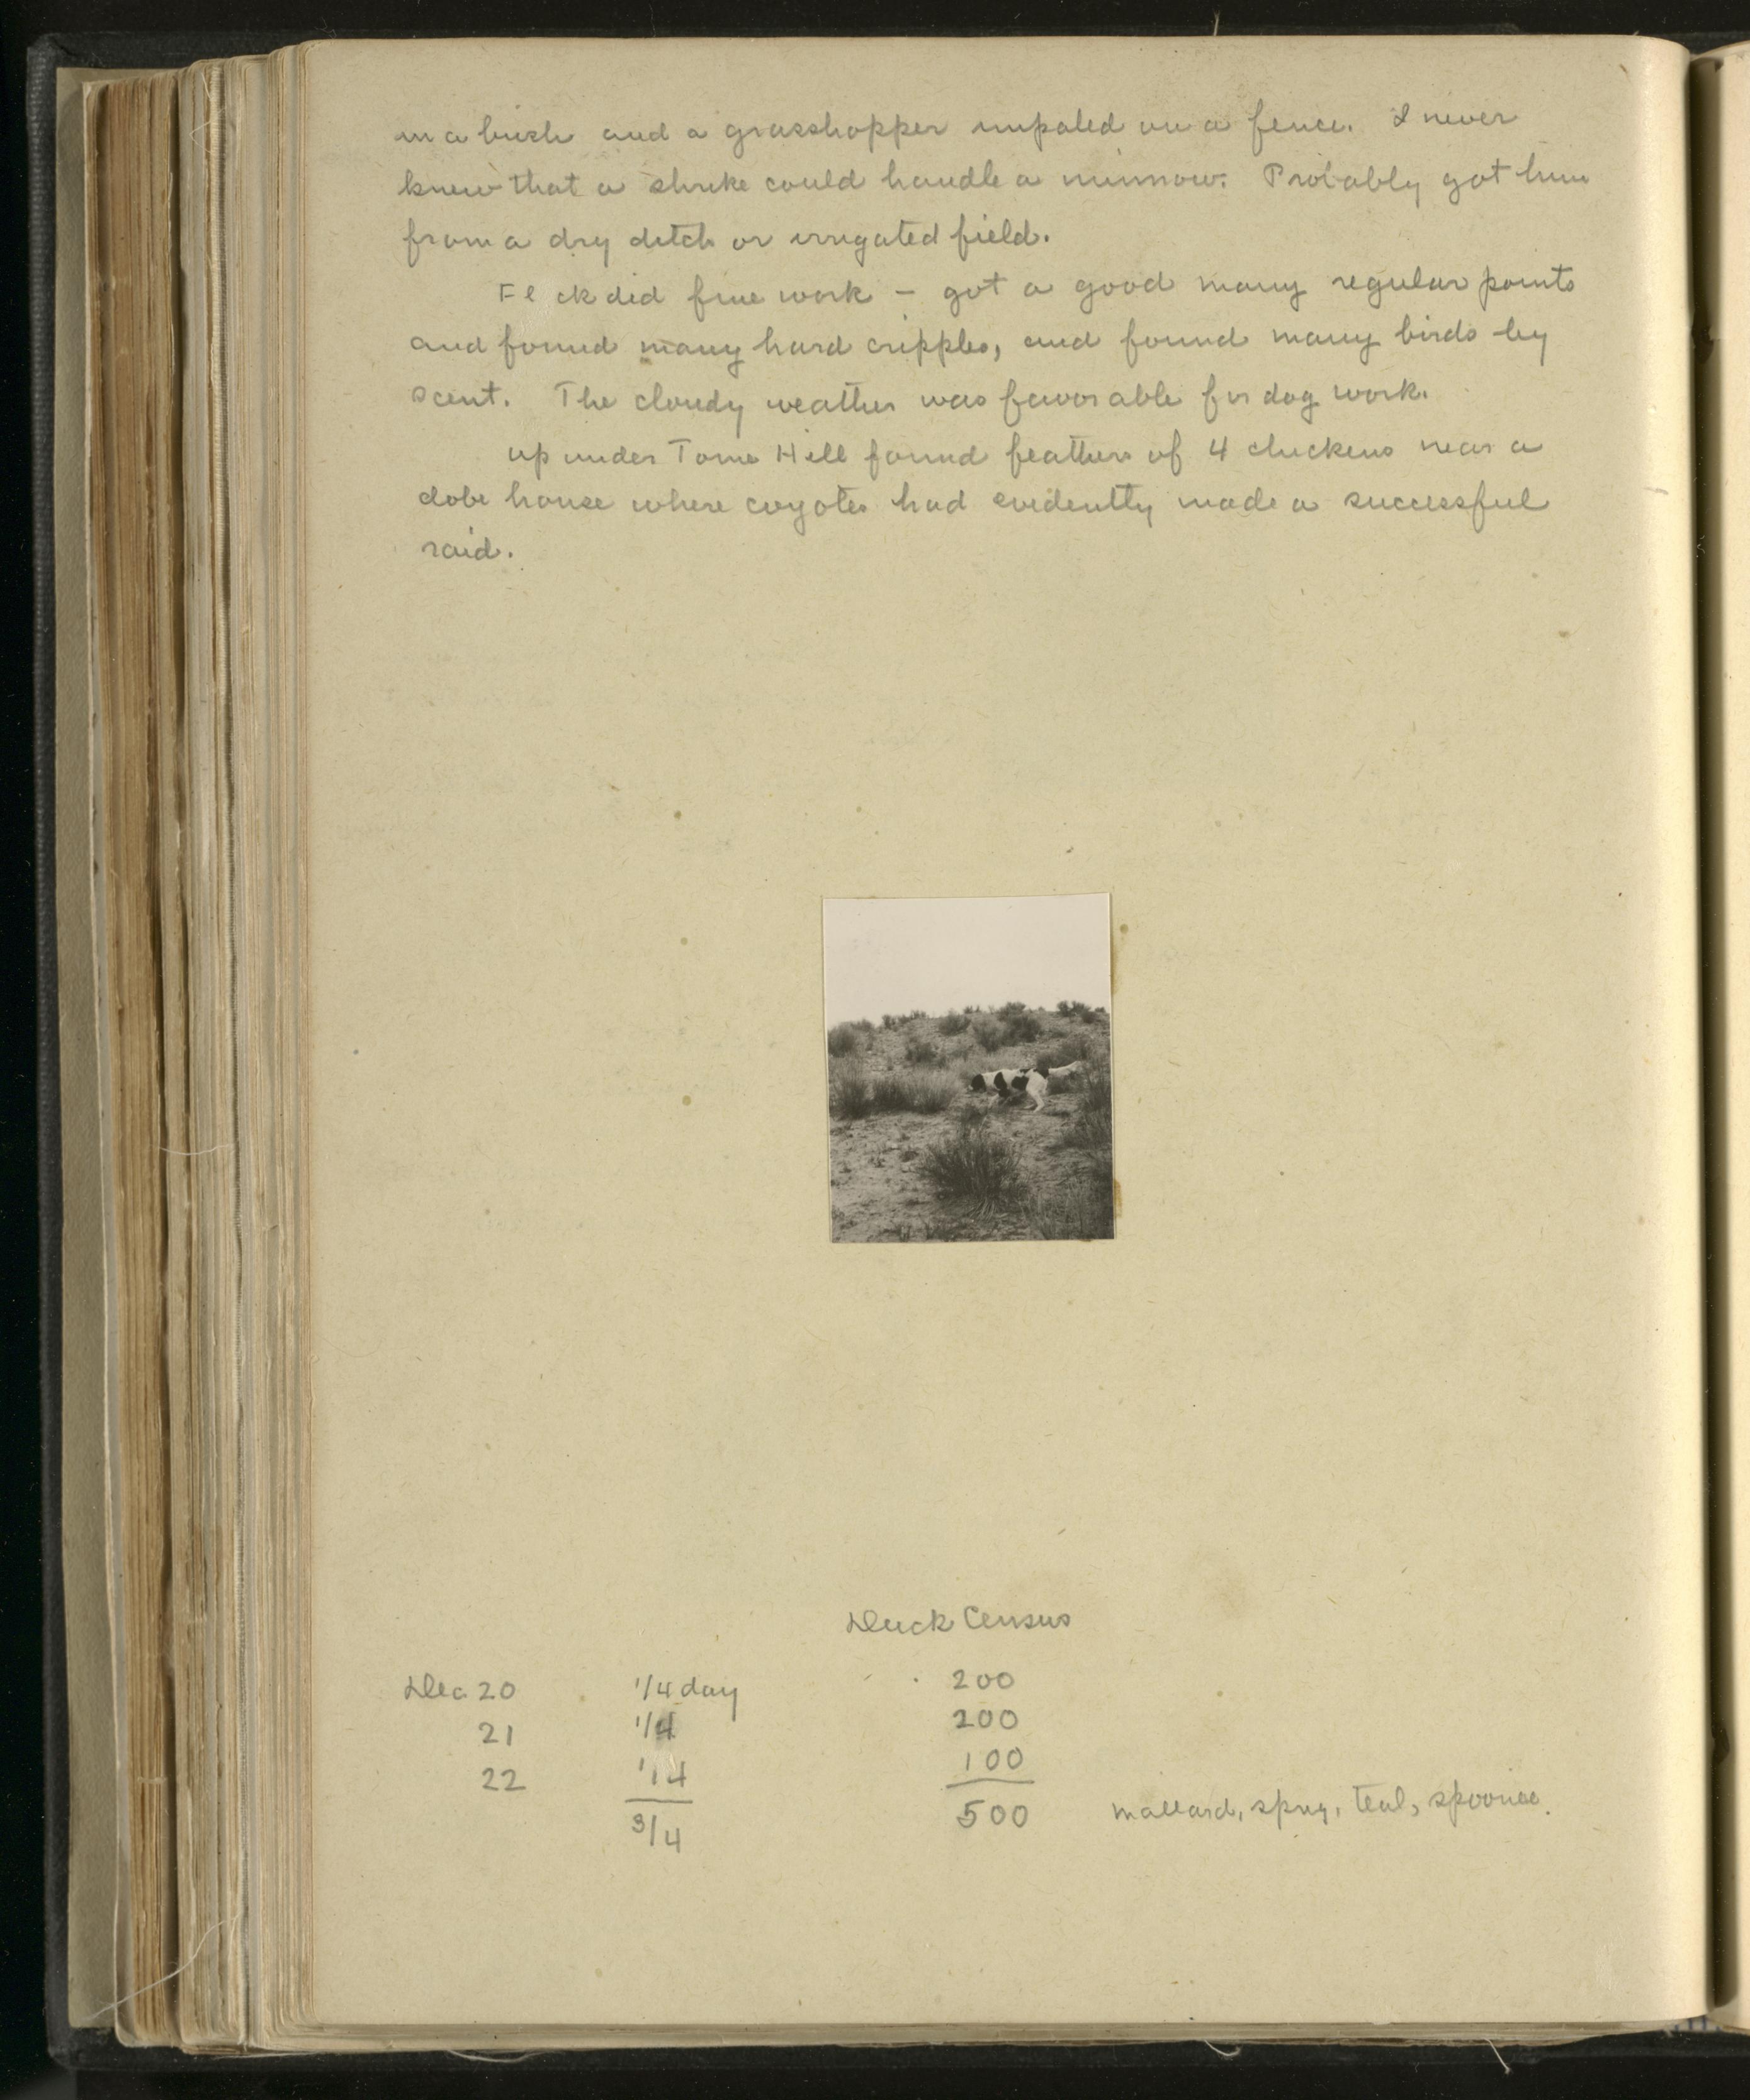 in a bush and a grasshopper impaled on a fence. I never
knew that a shrike could handle a minnow. Probably got him
from a dry ditch or irrigated field.
Fl ck did fine work – got a good many regular points
and found many hard cripples, and found many birds by
scent. The cloudy weather was favorable for dog work.
Up under Tome Hill found feathers of 4 chickens near a
dobe house where coyotes had evidently made a successful
raid.
Duck Census
Dec. 20 1/4 day 200
21 1/4 200
22 1/4 100
3/4 500 mallard, sprig, teal, spoonie.